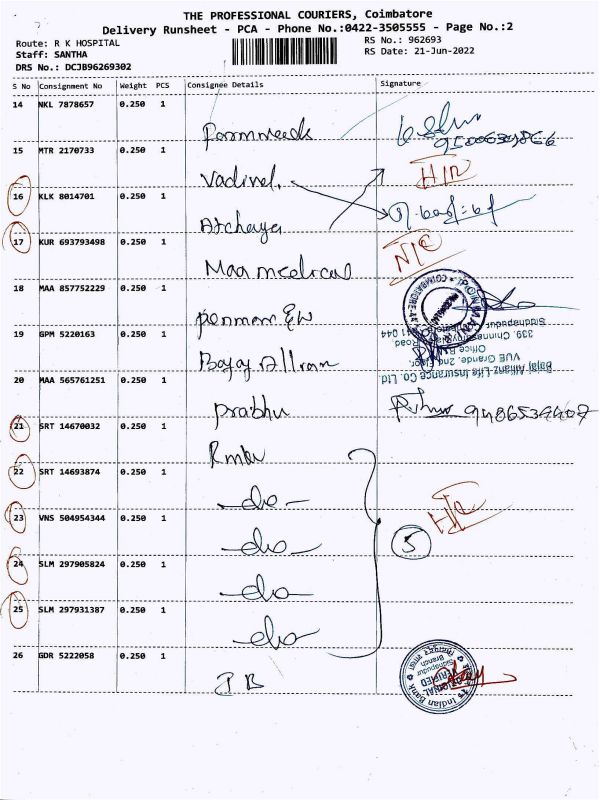 THE PROFESSIONAL COURIERS, Coimbatore
Delivery Runsheet - PCA - Phone No.:0422-3505555 - Page No.:2
Route: R K HOSPITAL
RS No.: 962693
Staff: SANTHA
RS Date: 21-Jun-2022
DRS No.: DCJB96269302
S No Consignment No Weight PCS Consignee Details Signature
14 NKL 7878657 0.250 1
15 MTR 2170733 0.250 1 Vadivel
16 KLK 8014701 0.250 1 Atchaya
17 KUR 693793498 0.250 1 Maa medical
18 MAA 857752229 0.250 1
19 GPM 5220163 0.250 1 Bajaj Allianz
Bajaj Allianz Life Insurance Co. Ltd.
VUE Grande, 2nd Floor,
339, Chinnaswamy Road,
Siddhapudur
20 MAA 565761251 0.250 1 Prabhu
21 SRT 14670032 0.250 1
22 SRT 14693874 0.250 1 -do-
23 VNS 504954344 0.250 1 -do-
5
24 SLM 297905824 0.250 1 -do-
25 SLM 297931387 0.250 1 -do-
26 GDR 5222058 0.250 1 I B
Indian Bank
Siddhapudur
Branch
VERIFIED
ORIGINAL